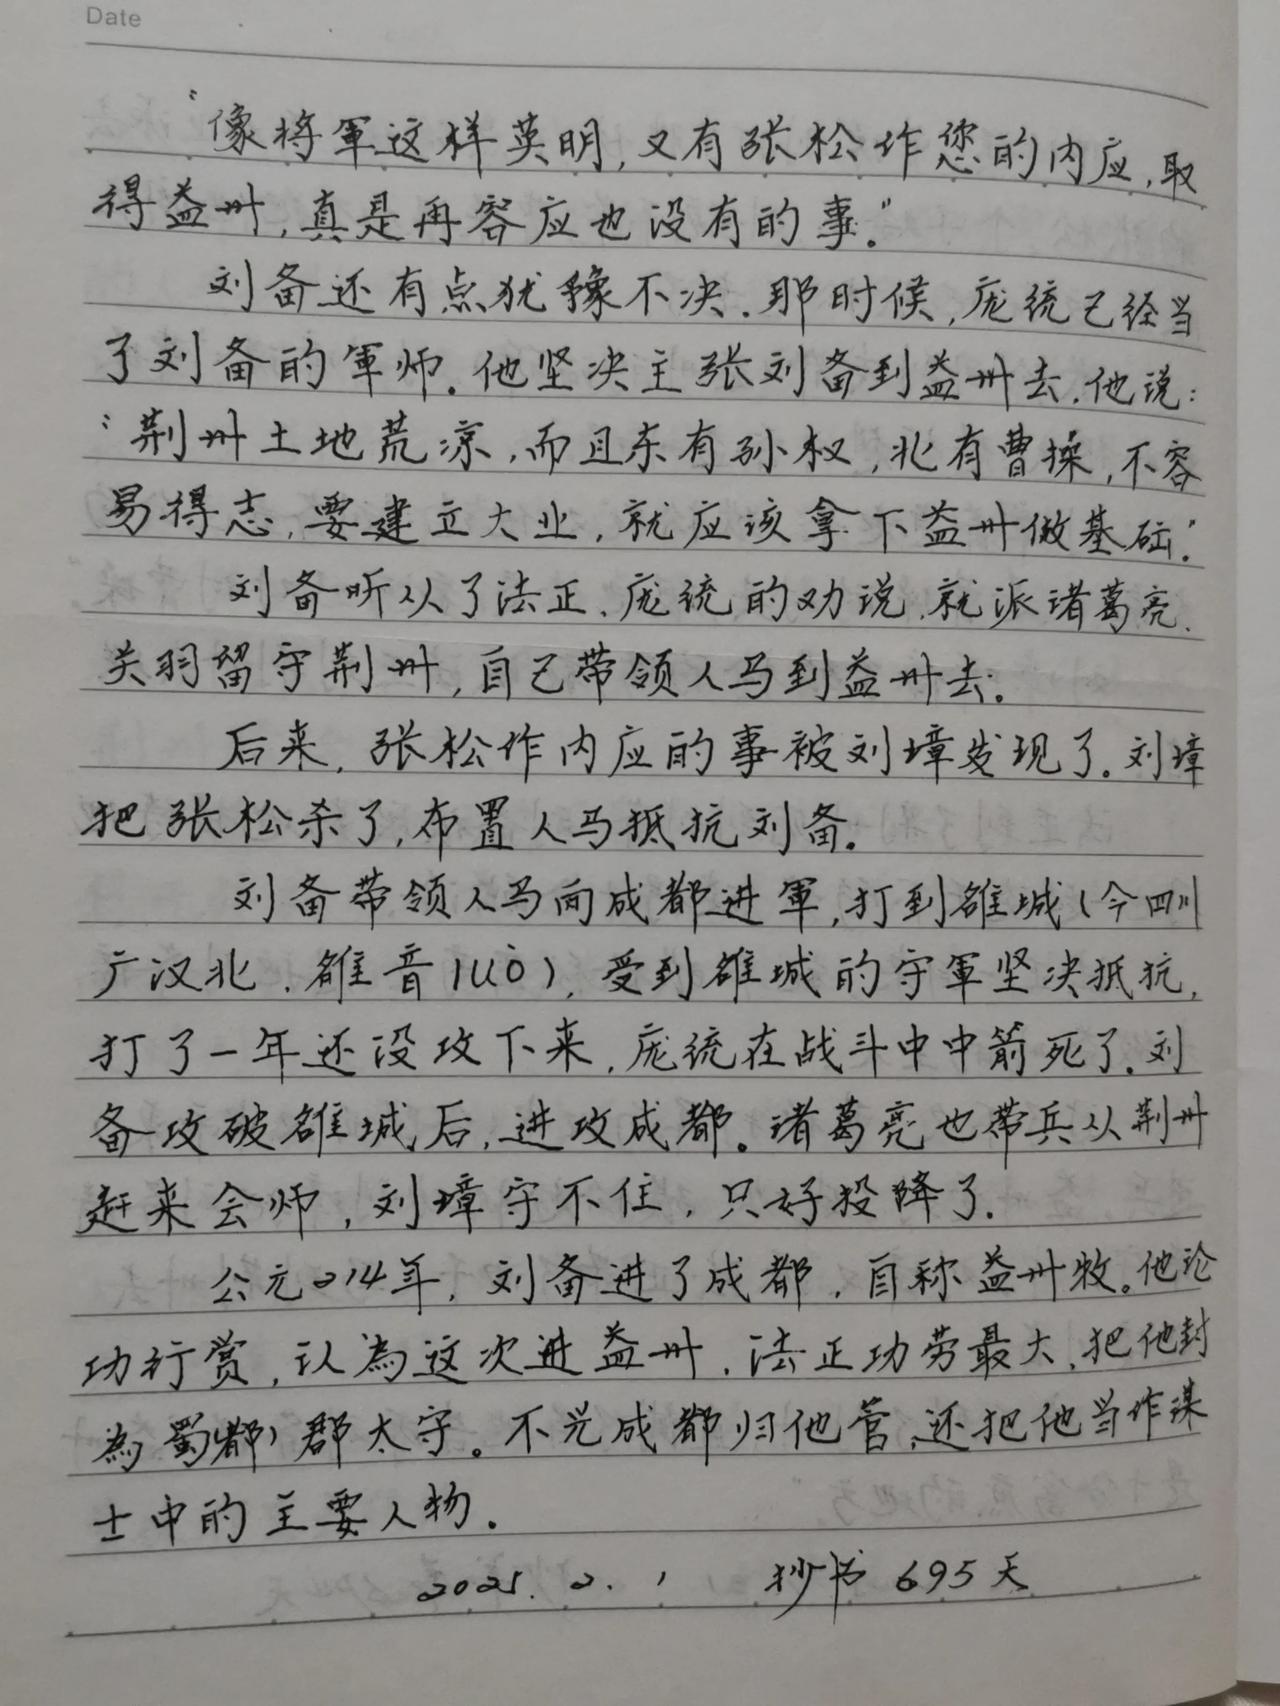 Date
“像将軍这样英明,又有张松作您的内应,取
得益州,真是再容应也没有的事。”
刘备还有点犹豫不决.那时候,庞统已经当
了刘备的軍师.他坚决主张刘备到益州去.他说:
“荆州土地荒凉,而且东有孙权,北有曹操,不容
易得志,要建立大业,就应该拿下益州做基础.”
刘备听从了法正、庞统的劝说.就派诸葛亮、
关羽留守荆州,自己带领人马到益州去.
后来,张松作内应的事被刘璋发现了.刘璋
把张松杀了,布置人马抵抗刘备.
刘备带领人马向成都进軍,打到雒城(今四川
广汉北.雒音luò),受到雒城的守軍坚决抵抗,
打了一年还没攻下来,庞统在战斗中中箭死了.刘
备攻破雒城后,进攻成都。诸葛亮也带兵从荆州
赶来会师,刘璋守不住,只好投降了.
公元214年,刘备进了成都,自称益州牧。他论
功行赏,认為这次进益州,法正功劳最大,把他封
為蜀(都)郡太守。不光成都归他管,还把他当作谋
士中的主要人物.
2025.2.1 抄书695天